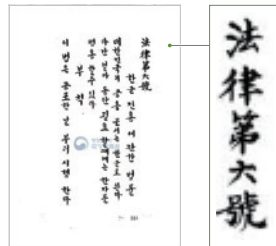 法律第六號
한글 전용에 관한 법률
대한민국의 공용문서는 한글로 쓴다
얼마동안 필요한 때에는 한자를
병용할 수 있다
부칙
이 법은 공포한 날부터 시행한다
法律第六號